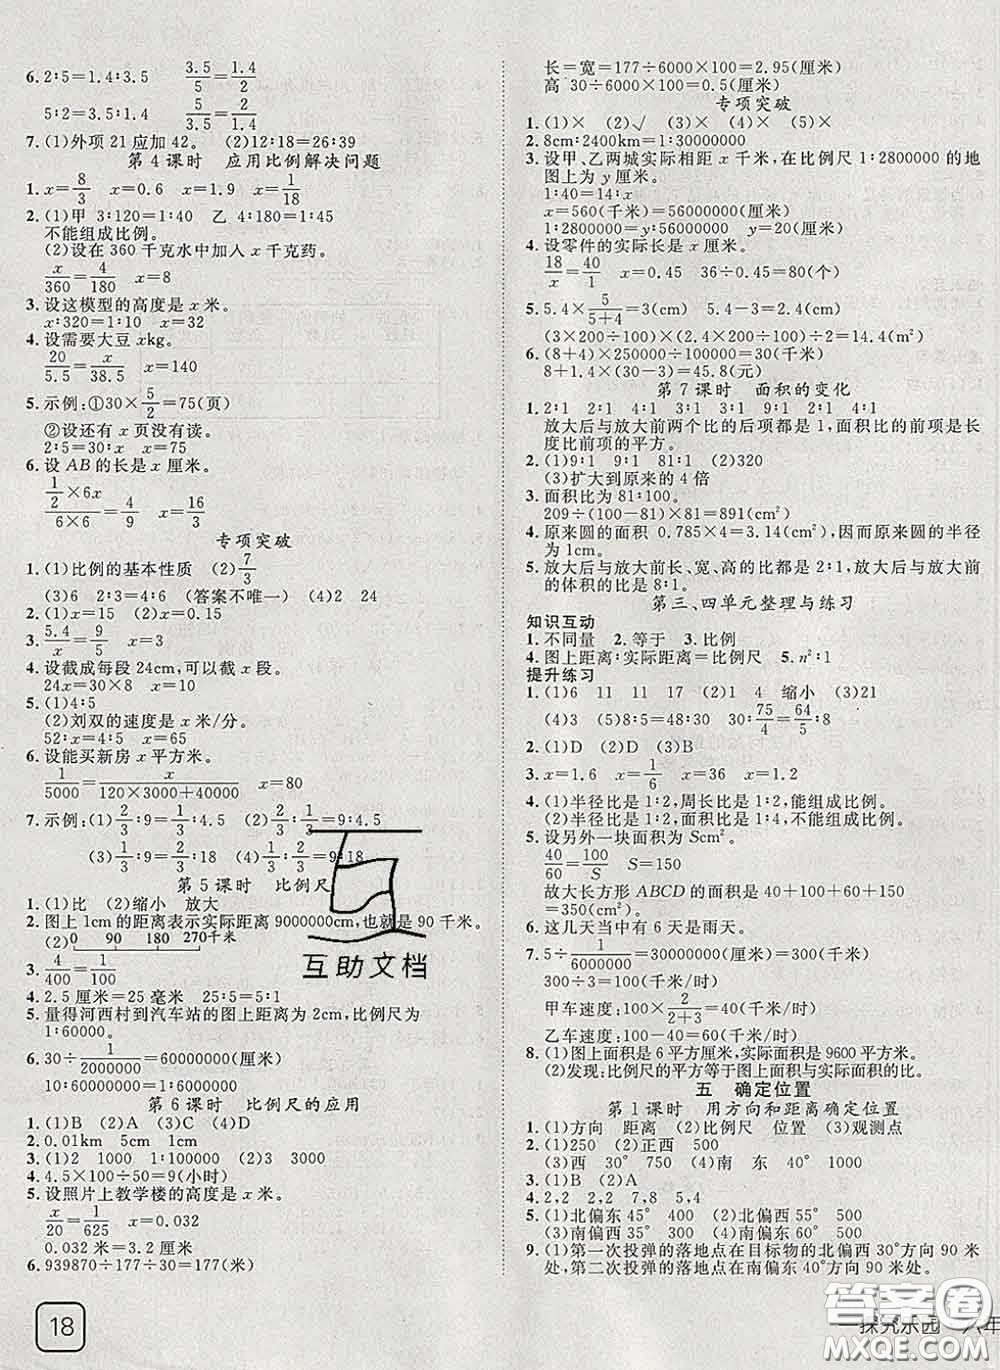 6. 2∶5=1.4∶3.5  3.5/5=1.4/2
5∶2=3.5∶1.4  5/3.5=2/1.4
7. (1)外项 21 应加 42。 (2)12∶18=26∶39
第 4 课时 应用比例解决问题
1. x=8/3  x=0.6  x=1.9  x=1/18
2. (1)甲 3∶120=1∶40 乙 4∶180=1∶45
不能组成比例。
(2)设在 360 千克水中加入 x 千克药。
x/360=4/180  x=8
3. 设这模型的高度是 x 米。
x∶320=1∶10  x=32
4. 设需要大豆 xkg。
20/5.5=x/38.5  x=140
5. 示例:①30×5/2=75(页)
②设还有 x 页没有读。
2∶5=30∶x  x=75
6. 设 AB 的长是 x 厘米。
1/2×6x/6×6=4/9  x=16/3
专项突破
1. (1)比例的基本性质 (2)7/3
(3)6 2∶3=4∶6 (答案不唯一) (4)2 24
2. (1)x=15 (2)x=0.15
3. 5.4/x=9/5  x=3
4. 设截成每段 24cm,可以截 x 段。
24x=30×8  x=10
5. (1)4∶5
(2)刘双的速度是 x 米/分。
52∶x=4∶5  x=65
6. 设能买新房 x 平方米。
1/50=x/120×3000+40000  x=80
7. 示例:(1)2/3∶9=1/3∶4.5 (2)2/3∶1/3=9∶4.5
(3)1/3∶9=2/3∶18 (4)1/3∶2/3=9∶18
第 5 课时 比例尺
1. (1)比 (2)缩小 放大
2. 图上 1cm 的距离表示实际距离 9000000cm,也就是 90 千米。
(2) 0 90 180 270千米
3. 4/400=1/100
4. 2.5 厘米=25 毫米 25∶5=5∶1
5. 量得河西村到汽车站的图上距离为 2cm,比例尺为
1∶60000。
6. 30÷1/2000000=60000000(厘米)
60000000厘米=600千米
第 6 课时 比例尺的应用
1. (1)B (2)A (3)C (4)D
2. 0.01km 5cm 1cm
3. (1)2 1000 1∶150000 (2)3000
4. 4.5×100÷50=9(小时)
5. 设照片上教学楼的高度是 x 米。
x/20=1/625  x=0.032
0.032 米=3.2 厘米
6. 939870÷177÷30=177(米)
18
长=宽=177÷6000×100=2.95(厘米)
高 30÷6000×100=0.5(厘米)
专项突破
1. (1)× (2)√ (3)× (4)×
2. 8cm∶2400km=1∶30000000
3. 设甲、乙两城实际相距 x 千米,在比例尺 1∶2800000 的地
图上为 y 厘米。
1∶40=14∶x
x=560(千米)=56000000(厘米)
1∶2800000=y∶56000000  y=20(厘米)
4. 设零件的实际长是 x 厘米。
18/x=40/1  x=0.45  36÷0.45=80(个)
5. 5.4×5/5+4=3(cm) 5.4-3=2.4(cm)
(3×200÷100)×(2.4×200÷100)÷2=14.4(cm²)
6. (8+4)×250000÷100000=30(千米)
8+1.4×(30-3)=45.8(元)
第 7 课时 面积的变化
1. 2∶1 4∶1 3∶1 9∶1 2∶1 4∶1
放大后与放大前两个比的后项都是 1,面积比的前项是长
度比前项的平方。
2. (1)9∶1 9∶1 81∶1 (2)320
(3)扩大到原来的 4 倍
3. 面积比为 81∶100。
209÷(100-81)×81=891(cm²)
4. 原来圆的面积 0.785×4=3.14(cm²),因而原来圆的半径
为 1cm。
5. 放大后与放大前长、宽、高的比都是 2∶1,放大后与放大前
的体积的比是 8∶1。
第三、四单元整理与练习
知识互动
1. 不同量 2. 等于 3. 比例
4. 图上距离∶实际距离=比例尺 5. n²∶1
提升练习
1. (1)6 11 11 17 (2)1 4 缩小 (3)21
(4)3 (5)8∶5=48∶30 30∶75/4=64/5∶8
2. (1)D (2)D (3)B
3. x=1.6  x=1/6  x=36  x=1.2
4. (1)半径比是 1∶2,周长比是 1∶2,能组成比例。
(2)半径比是 1∶2,面积比是 1∶4,不能组成比例。
5. 设另外一块面积为 Scm²。
40/60=100/S  S=150
故大长方形 ABCD 的面积是 40+100+60+150
=350(cm²)
6. 这几天当中有 6 天是雨天。
7. 5÷1/6000000=30000000(厘米)=300(千米)
300÷3=100(千米/时)
甲车速度:100×2/2+3=40(千米/时)
乙车速度:100-40=60(千米/时)
8. (1)图上面积是 6 平方厘米,实际面积是 9600 平方米。
(2)发现:比例尺的平方等于图上面积与实际面积的比。
五 确定位置
第 1 课时 用方向和距离确定位置
1. (1)方向 距离 (2)比例尺 位置 (3)观测点
2. (1)250 (2)正西 500
(3)西 30° 750 (4)南 东 40° 500
3. (1)B (2)A
4. 2,2 2,2 7,8 5,4
5. (1)北偏东 45° 400 (2)北偏西 55° 500
(3)南偏西 35° 500 (4)南偏东 65° 600
9. (1)第一次投弹的落地点在目标物的北偏西 30°方向 90 米
处,第二次投弹的落地点在南偏东 40°方向 90 米处。
探究乐园 六年
互助文档
答案圈
MXQE.COM